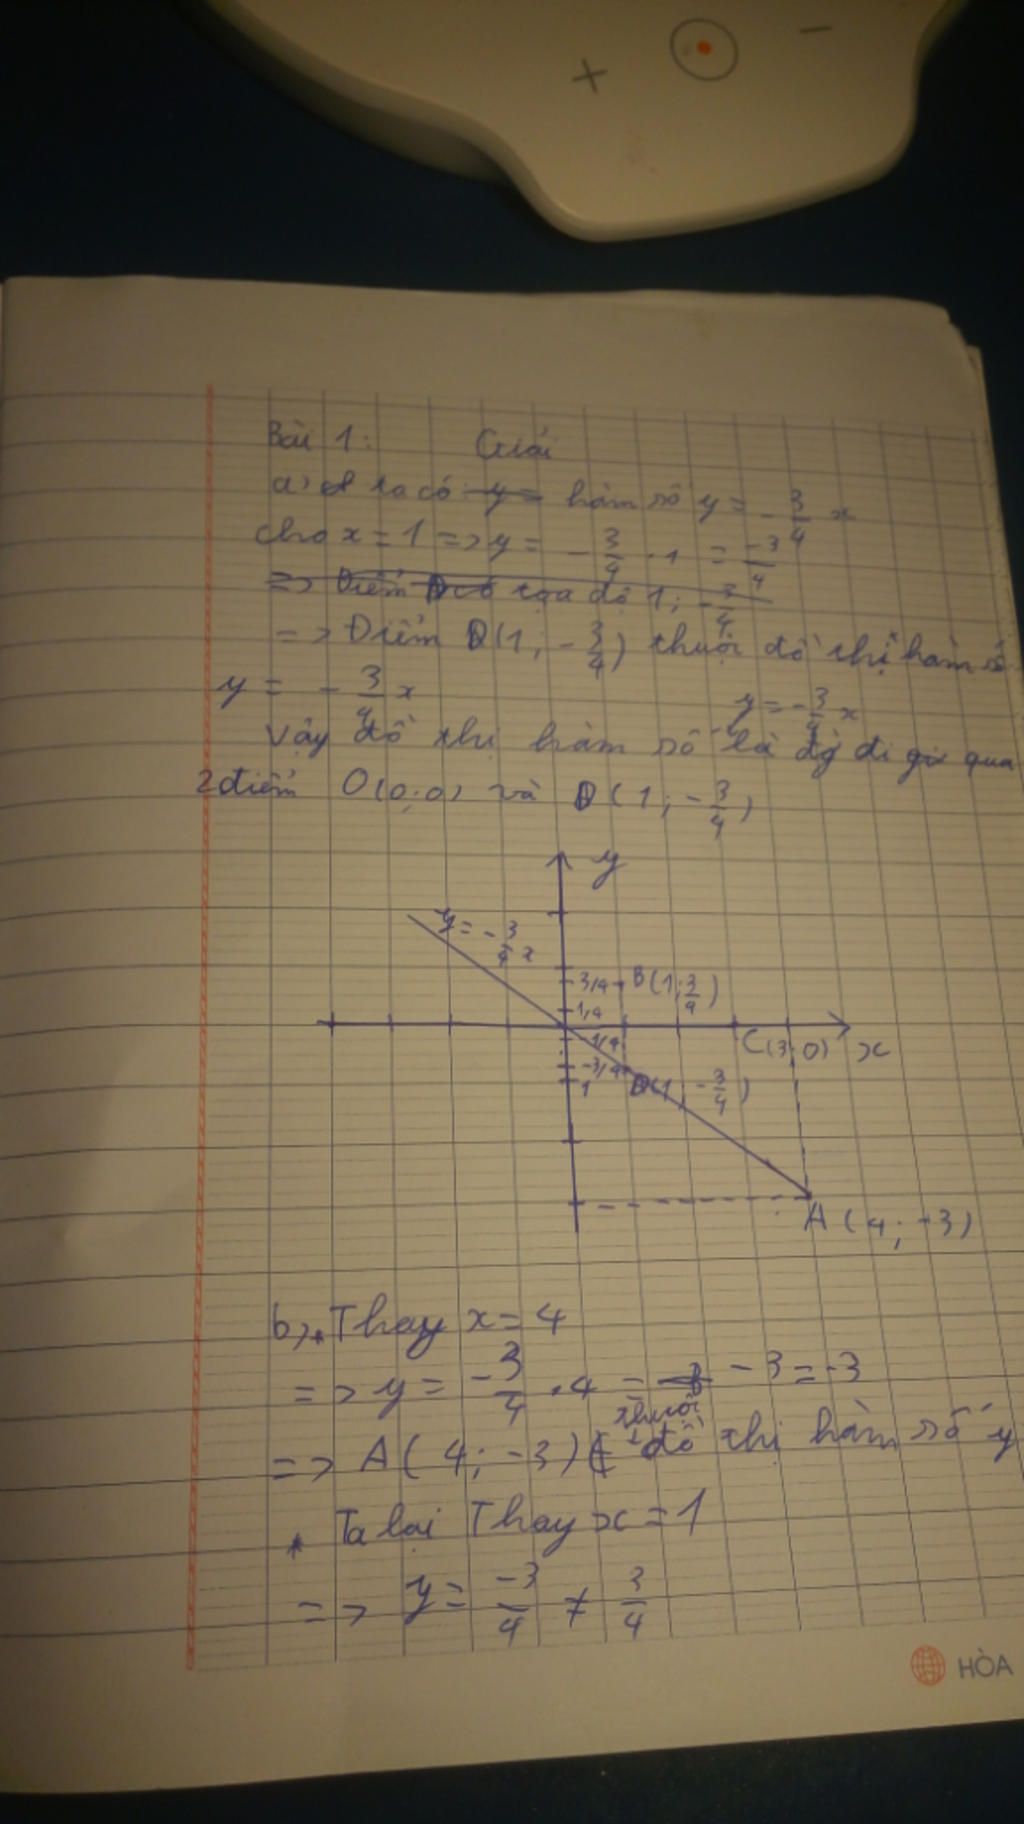 + −
Bài 1: Giải
a) ta có y = hàm số y = -3/4 x
cho x = 1 => y = -3/4 . 1 = -3/4
=> Điểm D có tọa độ 1; -3/4
=> Điểm D(1; -3/4) thuộc đồ thị hàm số
y = -3/4 x
y = -3/4 x
Vậy đồ thị hàm số là đg đi qua
2 điểm O(0;0) và D(1; -3/4)
y
y = -3/4 x
3/4 B(1; 3/4)
1/4
C(3;0) x
-1/4
-3/4 D(1; -3/4)
1
A(4; -3)
b) * Thay x = 4
=> y = -3/4 . 4 = -3 = -3
thuộc
=> A(4; -3) đồ thị hàm số y
* Ta lại Thay x = 1
=> y = -3/4 ≠ 3/4
HÒA